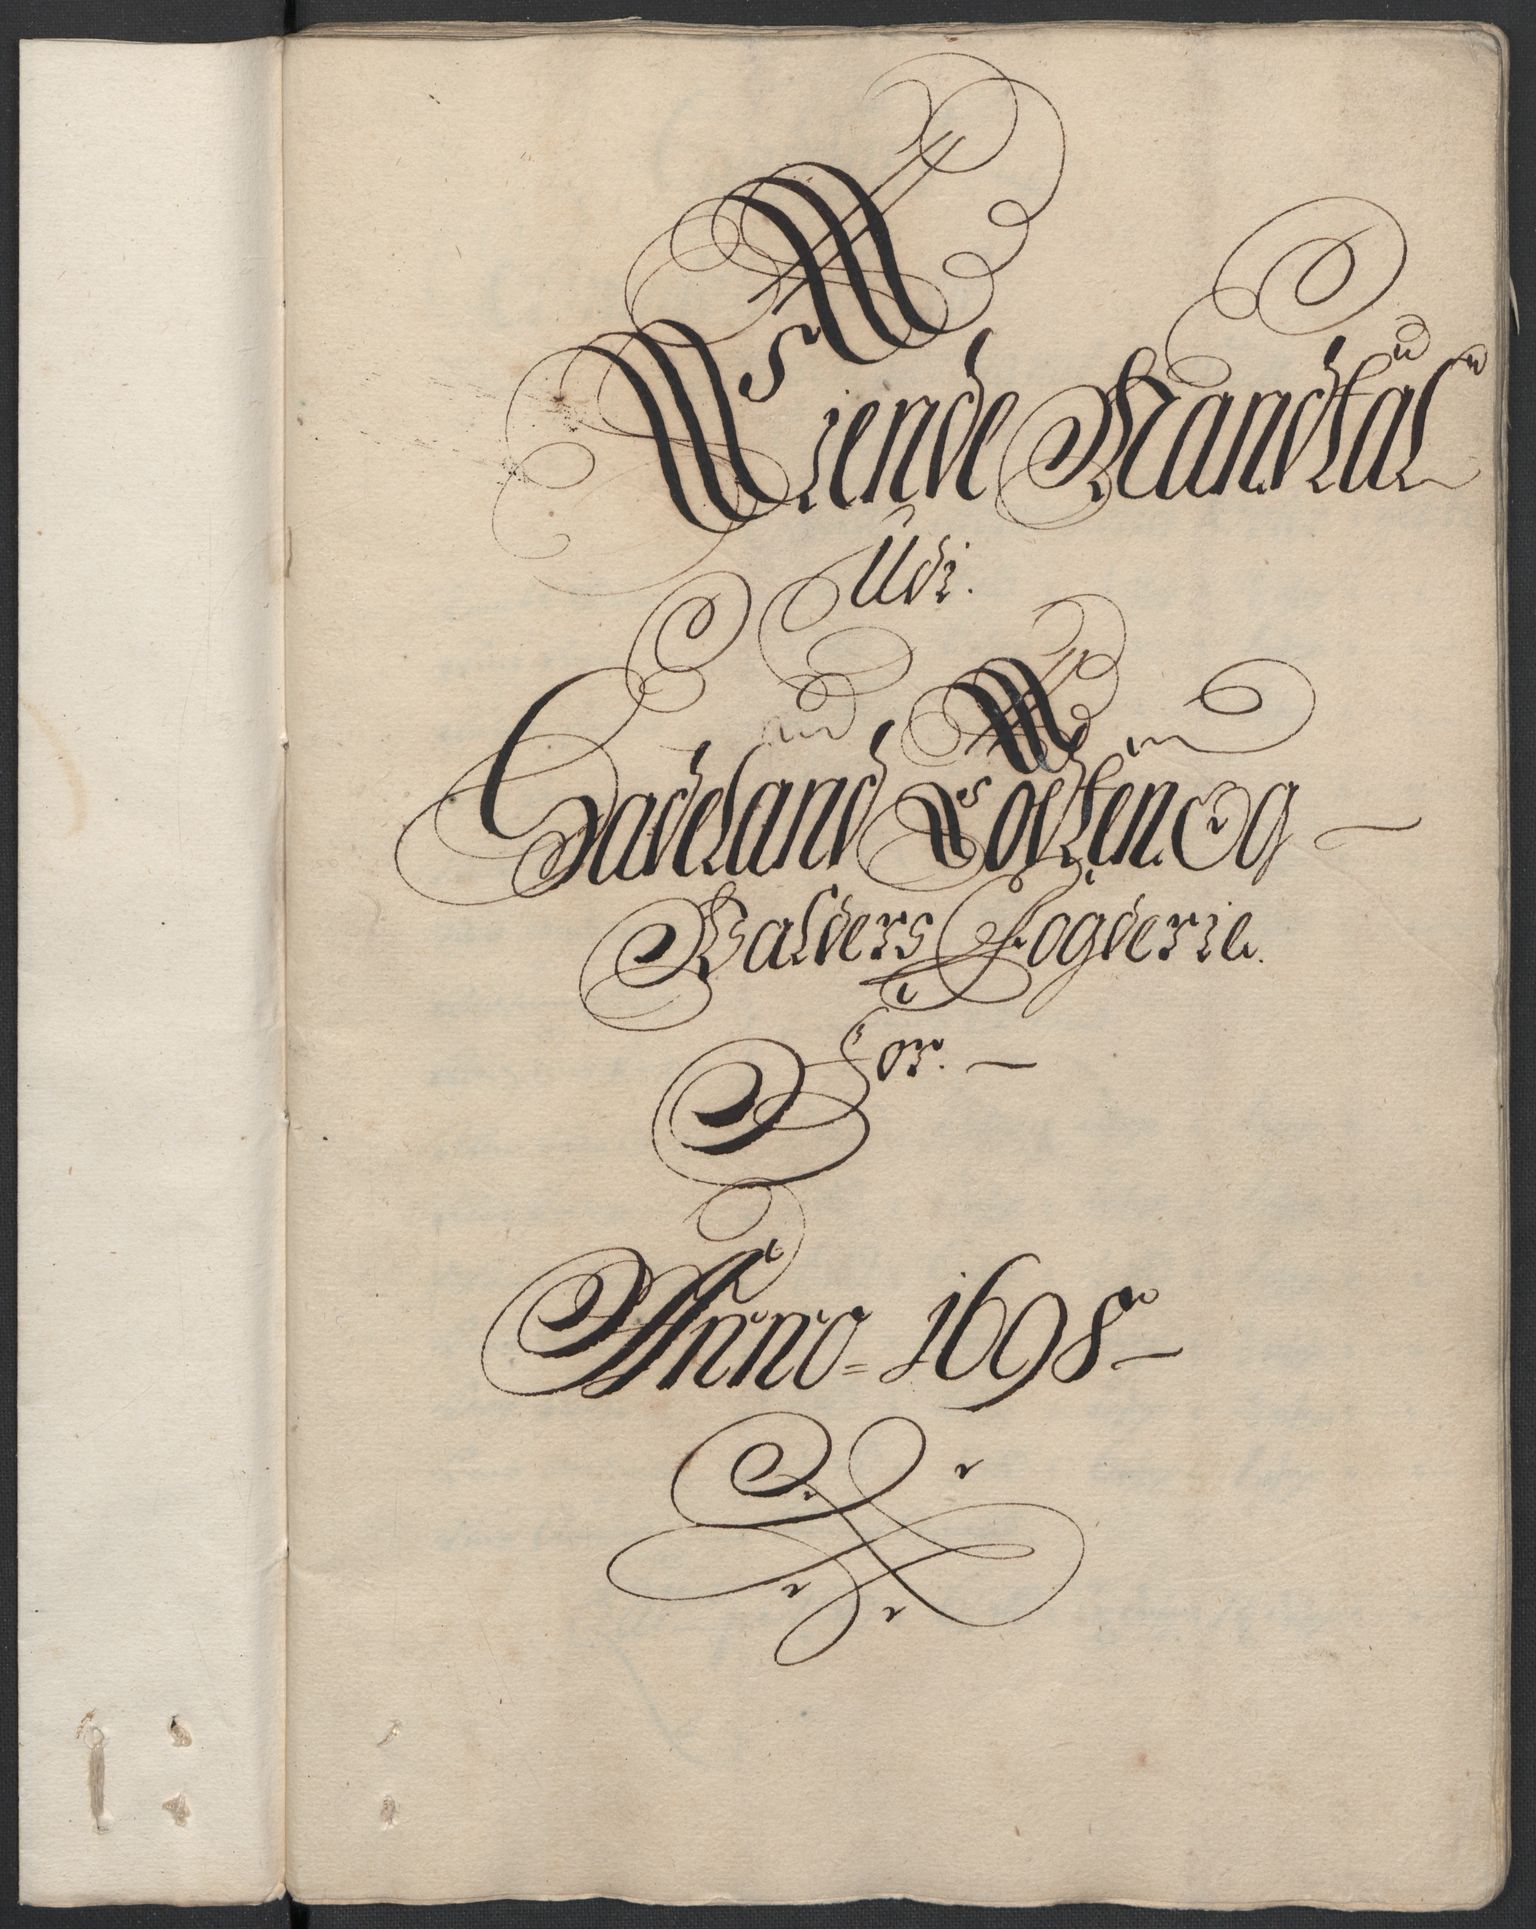 Tiende Mandtal
Udi.
Hadeland Toten Og
Valders Fogderie.
For.
Anno 1698